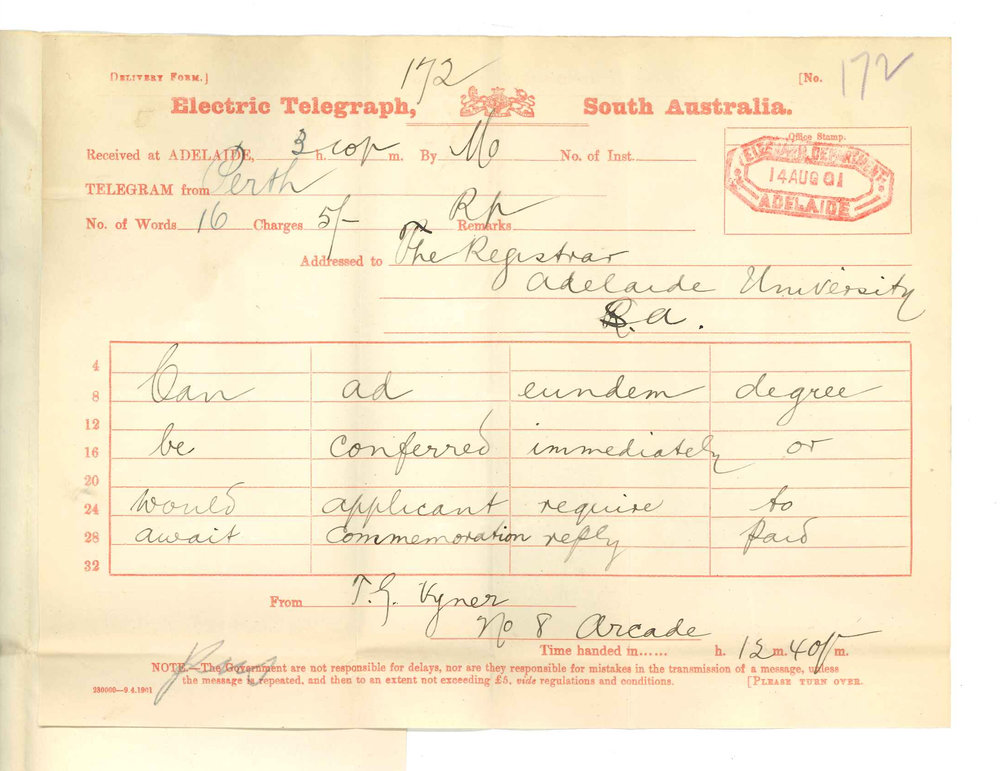 172
172
DELIVERY FORM.] [No.
Electric Telegraph, South Australia.
Office Stamp.
Received at ADELAIDE, 3 h. m. By Mo No. of Inst.
TELEGRAPH DEPARTMENT
14 AUG 01
ADELAIDE
TELEGRAM from Perth
No. of Words 16 Charges 5/- Remarks Rp
Addressed to The Registrar
Adelaide University
S.A.
4
8 Can ad eundem degree
12
16 be conferred immediately or
20
24 would applicant require to
28 await commemoration reply paid
32
From T.G. Vyner
No 8 Arcade
Time handed in...... h. 12 m. 40 p m.
NOTE.—The Government are not responsible for delays, nor are they responsible for mistakes in the transmission of a message, unless
the message is repeated, and then to an extent not exceeding £5, vide regulations and conditions. [PLEASE TURN OVER.
230000—9 4.1901